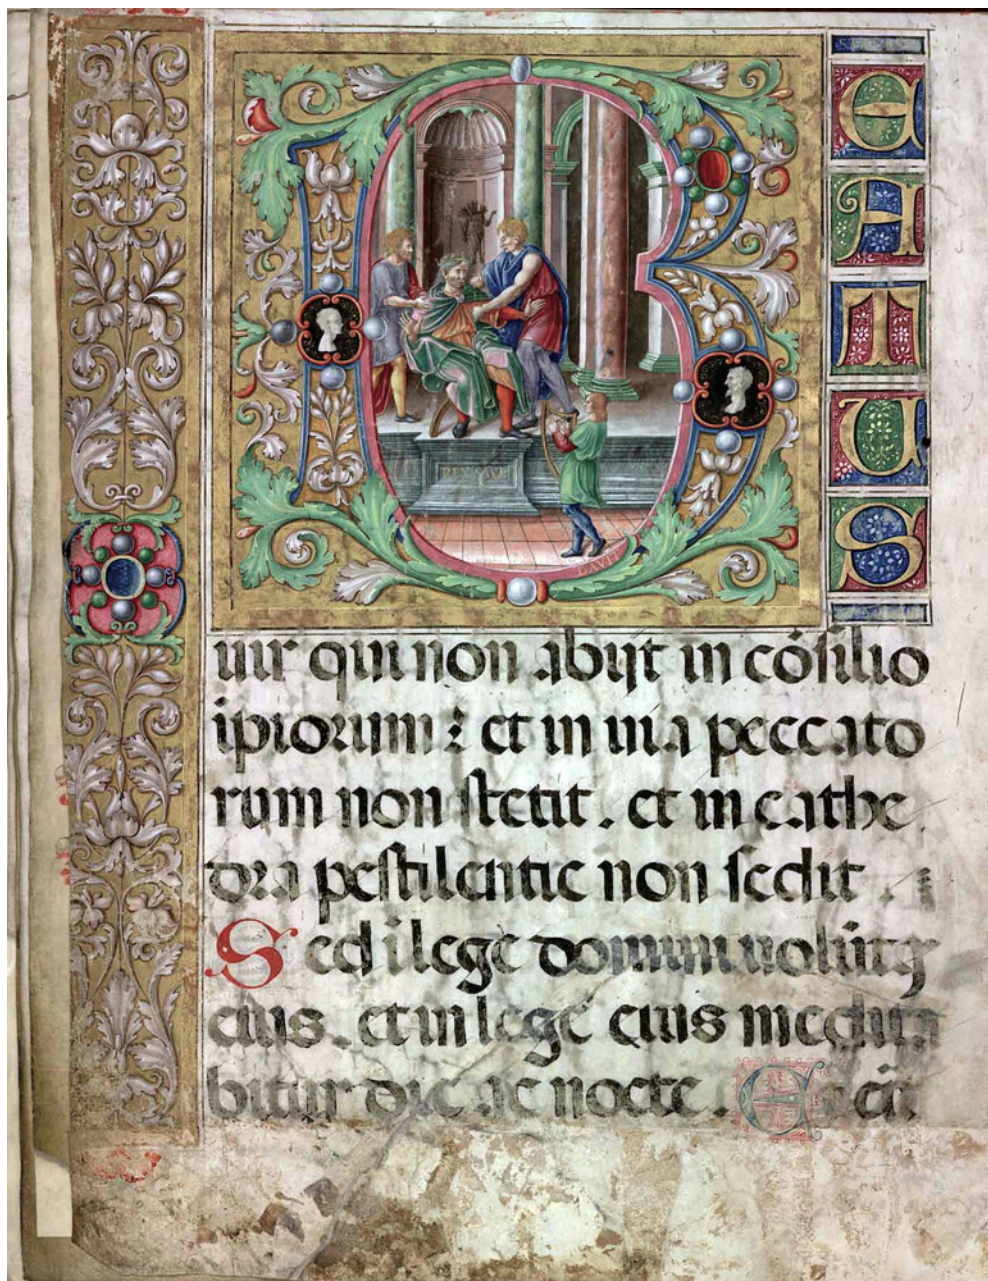 B
E
A
T
U
S
REX SAVL
DAVI
uir qui non abijt in cōsilio
ipiorum : et in uia peccato
rum non stetit . et in cathe
dra pestilentie non sedit .
Sed i lege domini uolūtas
eius . et in lege eius medita
bitur die ac nocte . Et erit